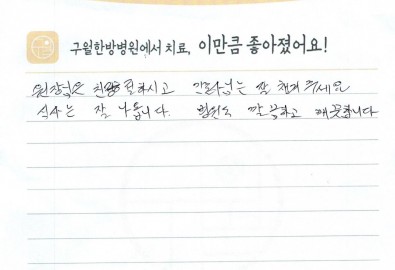 구월한방병원에서 치료, 이만큼 좋아졌어요!
원장님은 친절하시고 간호사님는 잘 챙겨주세요
식사는 잘 나옵니다. 병원도 깔끔하고 깨끗합니다